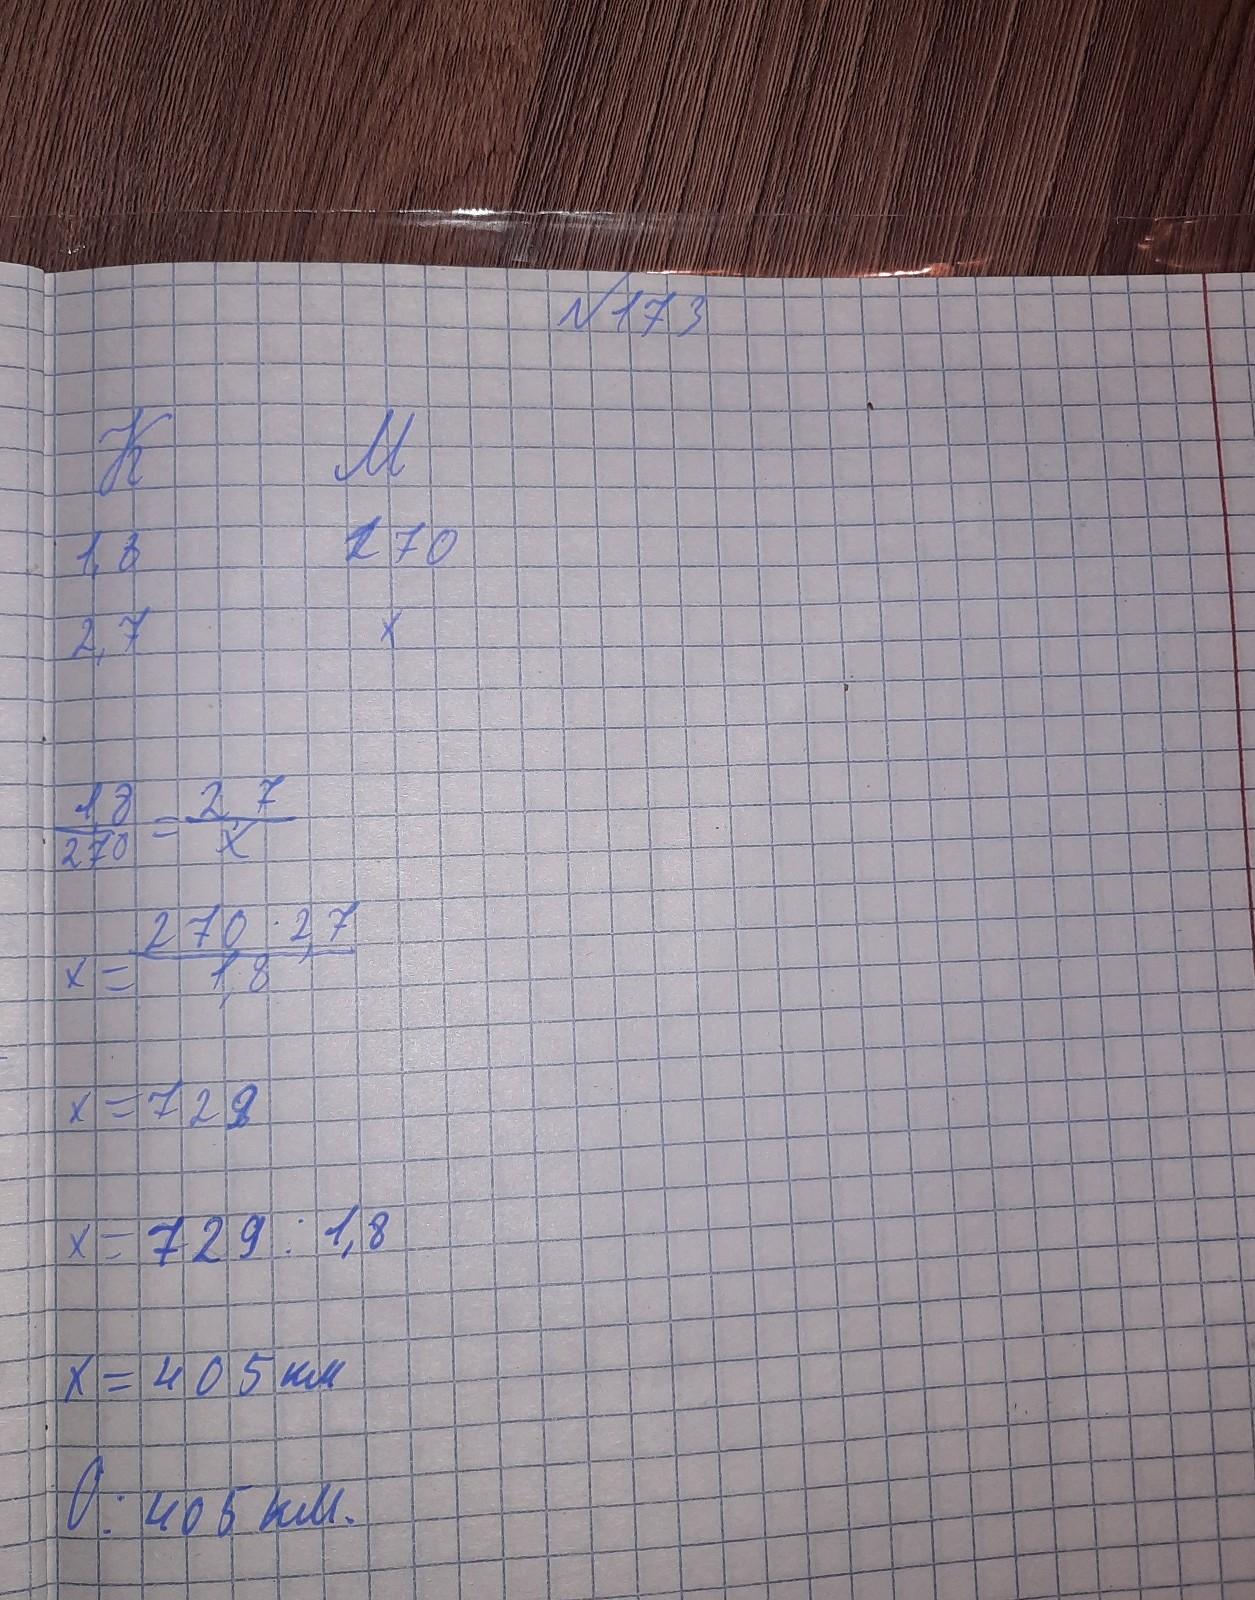 №173
К М
1,8 270
2,7 x
1,8/270 = 2,7/x
x = 270 · 2,7/1,8
x = 729
x = 729 : 1,8
x = 405 км
О: 405 км.